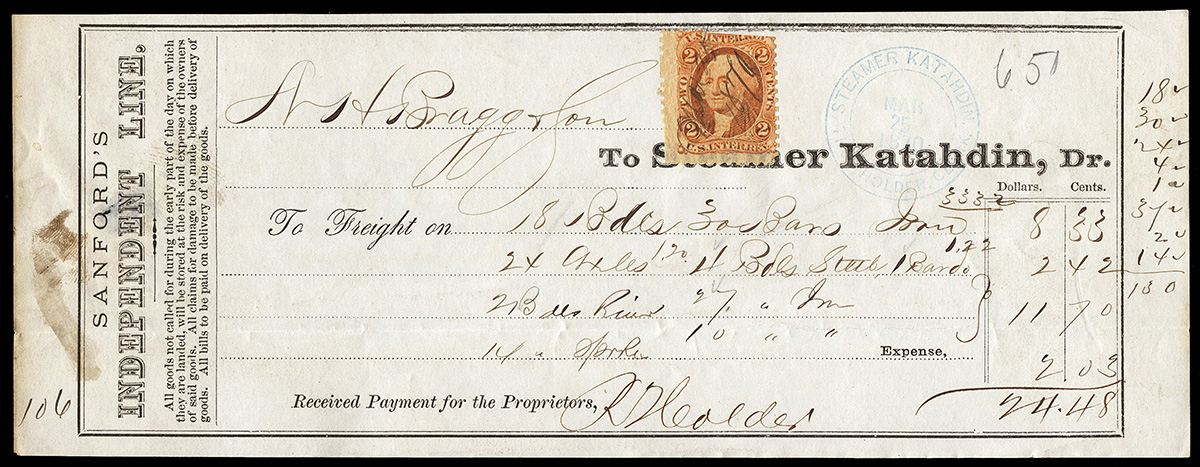 SANFORD'S
INDEPENDENT LINE,
All goods not called for during the early part of the day on which
they are landed, will be stored at the risk and expense of the owners
of said goods. All claims for damage to be made before delivery of
goods. All bills to be paid on delivery of the goods.
106
U.S. INTER. REV.
2 2
TWO CENTS
2 2
U.S. INTER. REV.
STEAMER KATAHDIN
MAR
25
HOLDER
651
N H Bragg & Son
To Steamer Katahdin, Dr.
Dollars. Cents.
3332
To Freight on 18 Bdls 30 Bars Iron 8 33
24 Axles 1.20 4 Bdls Steel 1 Bar do 1.22 2 42
2 Bdles 27 " 11 70
14 " Spokes 10 " " Expense,
2 03
Received Payment for the Proprietors, R Holder 24.48
18
30
24
4
1
37
2
14
130